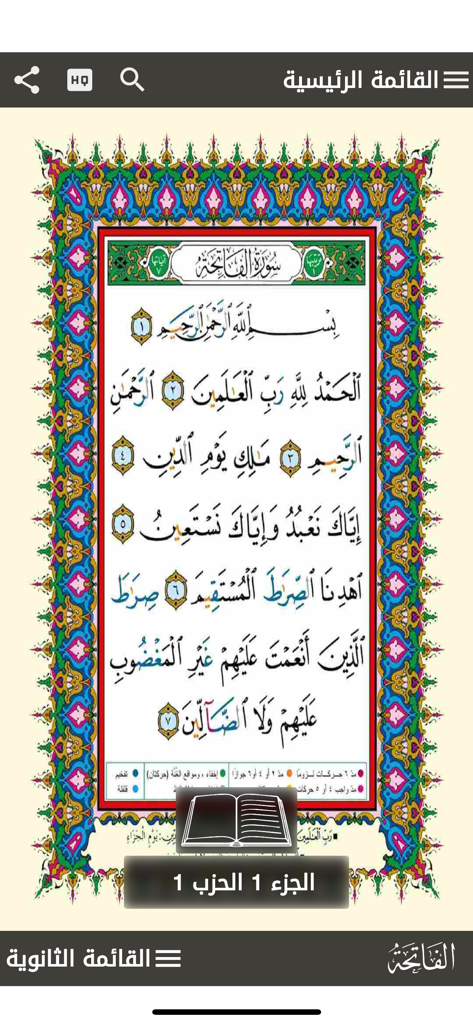 القائمة الرئيسية
HQ
ترتيبها ١ سُورَةُ الفَاتِحَةِ آياتها ٧
بِسْمِ ٱللَّهِ ٱلرَّحْمَٰنِ ٱلرَّحِيمِ ١
ٱلْحَمْدُ لِلَّهِ رَبِّ ٱلْعَٰلَمِينَ ٢ ٱلرَّحْمَٰنِ
ٱلرَّحِيمِ ٣ مَٰلِكِ يَوْمِ ٱلدِّينِ ٤
إِيَّاكَ نَعْبُدُ وَإِيَّاكَ نَسْتَعِينُ ٥
ٱهْدِنَا ٱلصِّرَٰطَ ٱلْمُسْتَقِيمَ ٦ صِرَٰطَ
ٱلَّذِينَ أَنْعَمْتَ عَلَيْهِمْ غَيْرِ ٱلْمَغْضُوبِ
عَلَيْهِمْ وَلَا ٱلضَّآلِّينَ ٧
مدّ ٦ حركات لزوماً مدّ ٢ أو ٤ أو ٦ جوازاً إخفاء، ومواقع الغُنَّة (حركتان) تفخيم
مدّ واجب ٤ أو ٥ حركات قلقلة
رَبِّ العَالَمِينَ يَوْمِ الجَزَاءِ
الجزء 1 الحزب 1
القائمة الثانوية
الفَاتِحَة